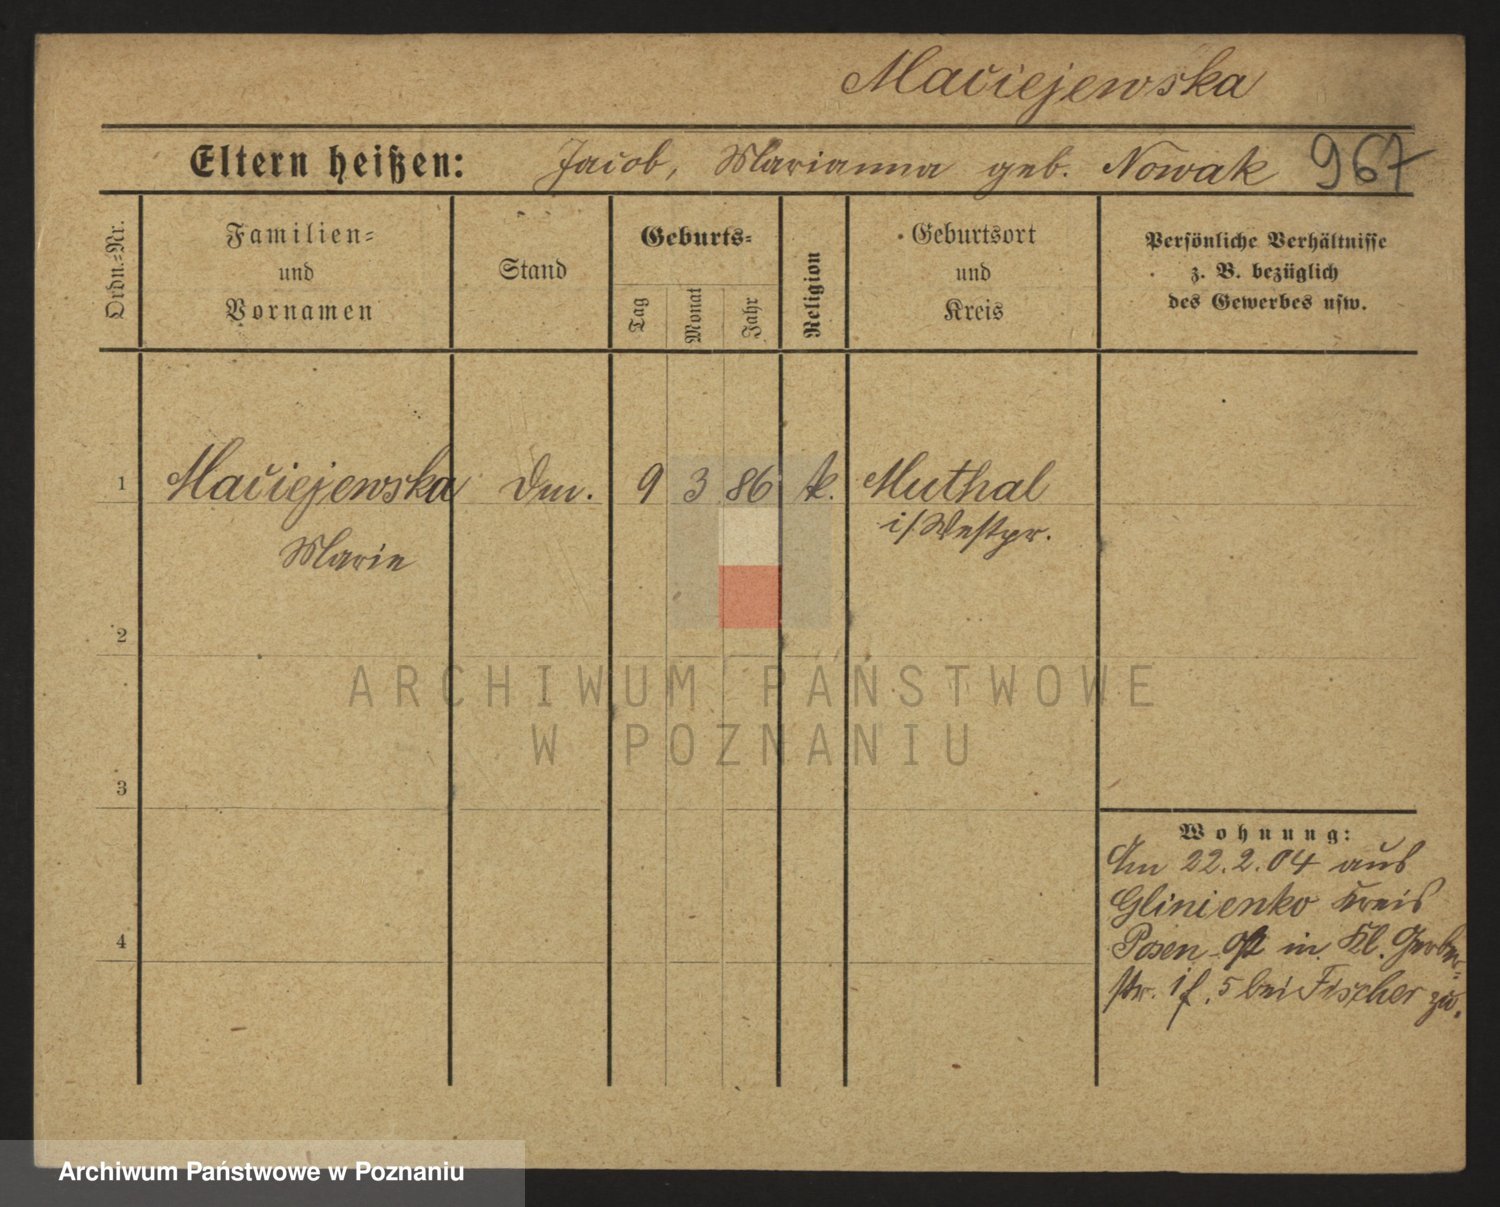 Maciejewska
Eltern heißen: Jacob, Marianna geb. Nowak 967
Ordn.-Nr.
Familien-
und
Vornamen
Stand
Geburts-
Tag
Monat
Jahr
Religion
Geburtsort
und
Kreis
Persönliche Verhältnisse
z. B. bezüglich
des Gewerbes usw.
1 Maciejewska 9 3 86 k. Muthal
Marie i/Westpr.
2
ARCHIWUM PAŃSTWOWE
W POZNANIU
3
Wohnung:
Am 22.2.04 aus
Glinienko Kreis
Posen Ost in Kl. Gerber-
str. 5 bei Fischer zu.
4
Archiwum Państwowe w Poznaniu